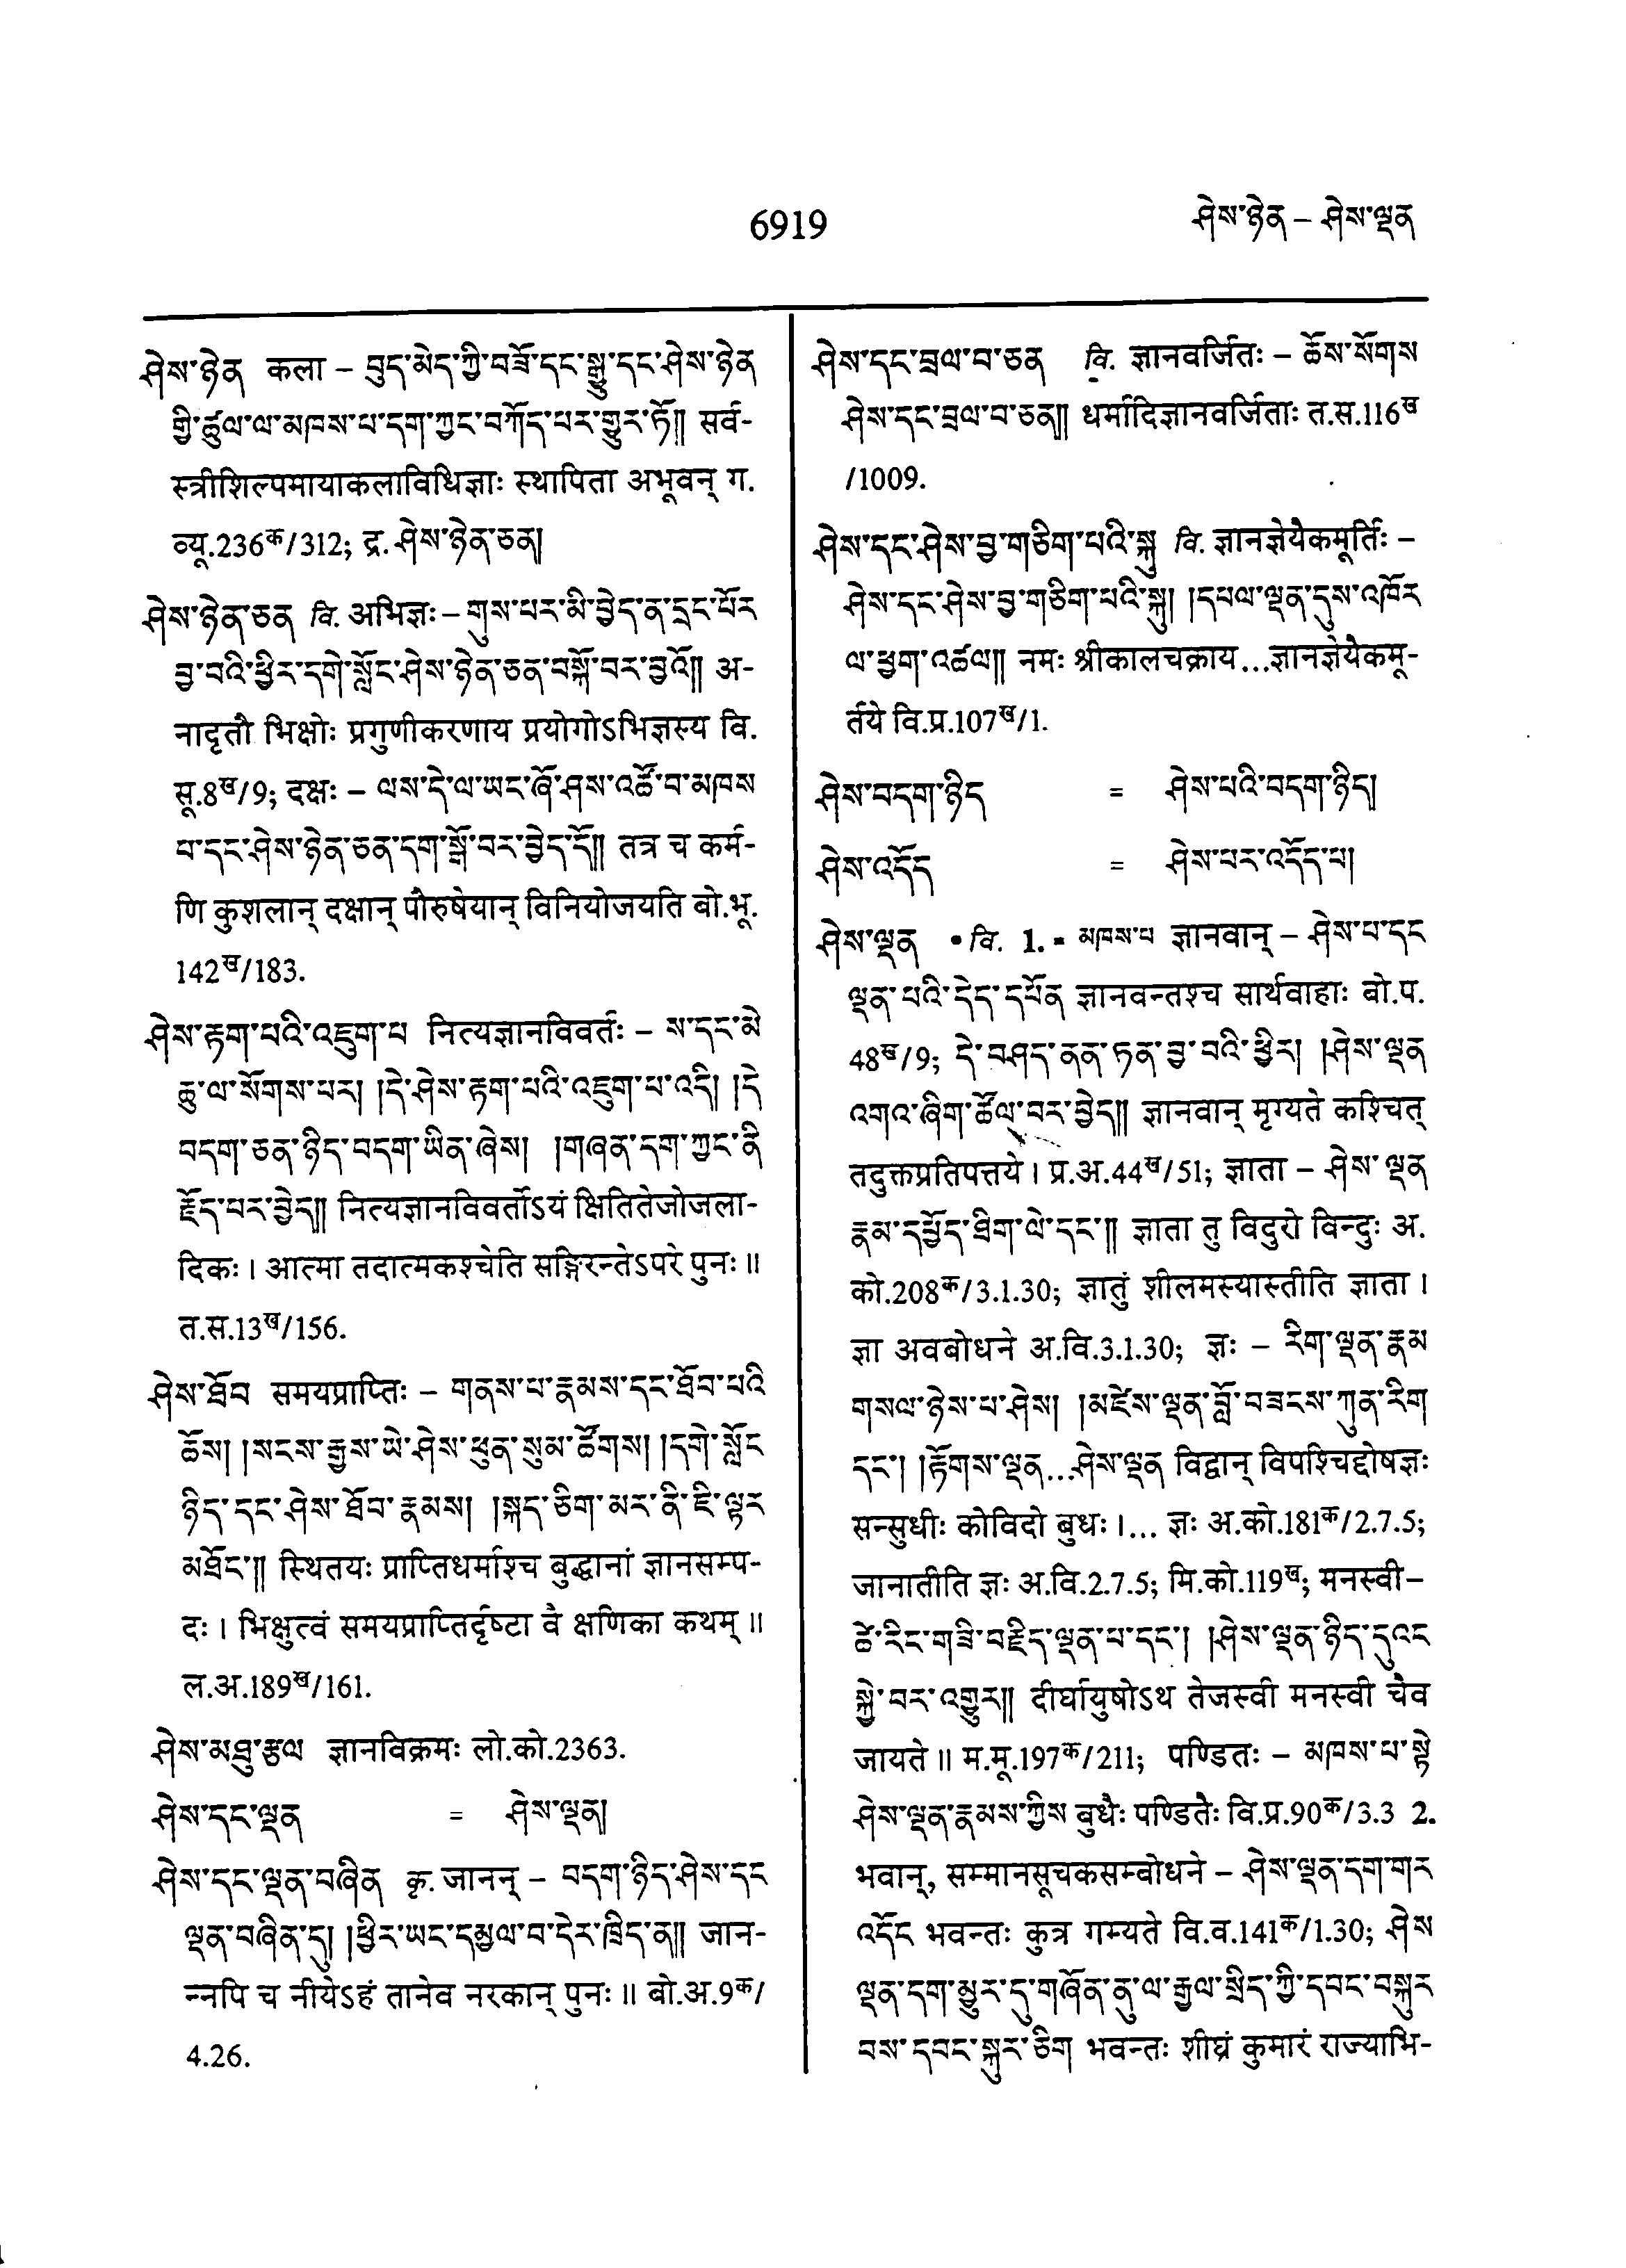 6919
ཤེས་ཉེན – ཤེས་ལྡན
ཤེས་ཉེན कला – བུད་མེད་ཀྱི་བཟོ་དང་སྒྱུ་དང་ཤེས་ཉེན
གྱི་ཚུལ་ལ་མཁས་པ་དག་ཀྱང་བཀོད་པར་གྱུར་ཏོ།། सर्व-
स्त्रीशिल्पमायाकलाविधिज्ञाः स्थापिता अभूवन् ग.
व्यू.236क/312; द्र. ཤེས་ཉེན་ཅན།
ཤེས་ཉེན་ཅན वि. अभिज्ञः – གུས་པར་མི་བྱེད་ན་དྲང་པོར
བྱ་བའི་ཕྱིར་དགེ་སློང་ཤེས་ཉེན་ཅན་བསྐོ་བར་བྱའོ།། अ-
नादृतौ भिक्षोः प्रगुणीकरणाय प्रयोगोऽभिज्ञस्य वि.
सू.8ख/9; दक्षः – ལས་དེ་ལ་ཡང་ཞོ་ཤས་འཚོ་བ་མཁས
པ་དང་ཤེས་ཉེན་ཅན་དག་སྒོ་བར་བྱེད་དོ།། तत्र च कर्म-
णि कुशलान् दक्षान् पौरुषेयान् विनियोजयति बो.भू.
142ख/183.
ཤེས་རྟག་པའི་འཇུག་པ नित्यज्ञानविवर्तः – ས་དང་མེ
ཆུ་ལ་སོགས་པར། །དེ་ཤེས་རྟག་པའི་འཇུག་པ་འདི། །དེ
བདག་ཅན་ཉིད་བདག་ཡིན་ཞེས། །གཞན་དག་ཀྱང་ནི
རྗོད་པར་བྱེད།། नित्यज्ञानविवर्तोऽयं क्षितितेजोजला-
दिकः । आत्मा तदात्मकश्चेति सङ्गिरन्तेऽपरे पुनः ॥
त.स.13ख/156.
ཤེས་ཐོབ समयप्राप्तिः – གནས་པ་རྣམས་དང་ཐོབ་པའི
ཆོས། །སངས་རྒྱས་ཡེ་ཤེས་ཕུན་སུམ་ཚོགས། །དགེ་སློང
ཉིད་དང་ཤེས་ཐོབ་རྣམས། །སྐད་ཅིག་མར་ནི་ཇི་ལྟར
མཐོང་།། स्थितयः प्राप्तिधर्माश्च बुद्धानां ज्ञानसम्प-
दः । भिक्षुत्वं समयप्राप्तिर्दृष्टा वै क्षणिका कथम् ॥
ल.अ.189ख/161.
ཤེས་མཐུ་རྩལ ज्ञानविक्रमः लो.को.2363.
ཤེས་དང་ལྡན = ཤེས་ལྡན།
ཤེས་དང་ལྡན་བཞིན कृ. जानन् – བདག་ཉིད་ཤེས་དང
ལྡན་བཞིན་དུ། །ཕྱིར་ཡང་དམྱལ་བ་དེར་ཁྲིད་ན།། जान-
न्नपि च नीयेऽहं तानेव नरकान् पुनः ॥ बो.अ.9क/
4.26.
ཤེས་དང་བྲལ་བ་ཅན वि. ज्ञानवर्जितः – ཆོས་སོགས
ཤེས་དང་བྲལ་བ་ཅན།། धर्मादिज्ञानवर्जिताः त.स.116ख
/1009.
ཤེས་དང་ཤེས་བྱ་གཅིག་པའི་སྐུ वि. ज्ञानज्ञेयैकमूर्तिः –
ཤེས་དང་ཤེས་བྱ་གཅིག་པའི་སྐུ། །དཔལ་ལྡན་དུས་འཁོར
ལ་ཕྱག་འཚལ།། नमः श्रीकालचक्राय...ज्ञानज्ञेयैकमू-
र्तये वि.प्र.107ख/1.
ཤེས་བདག་ཉིད = ཤེས་པའི་བདག་ཉིད།
ཤེས་འདོད = ཤེས་པར་འདོད་པ།
ཤེས་ལྡན • वि. 1. ▪ མཁས་པ ज्ञानवान् – ཤེས་པ་དང
ལྡན་པའི་དེད་དཔོན ज्ञानवन्तश्च सार्थवाहाः बो.प.
48ख/9; དེ་བཤད་ནན་ཏན་བྱ་བའི་ཕྱིར། །ཤེས་ལྡན
འགའ་ཞིག་ཚོལ་བར་བྱེད།། ज्ञानवान् मृग्यते कश्चित्
तदुक्तप्रतिपत्तये । प्र.अ.44ख/51; ज्ञाता – ཤེས་ལྡན
རྣམ་དཔྱོད་ཐིག་ལེ་དང་།། ज्ञाता तु विदुरो विन्दुः अ.
को.208क/3.1.30; ज्ञातुं शीलमस्यास्तीति ज्ञाता ।
ज्ञा अवबोधने अ.वि.3.1.30; ज्ञः – རིག་ལྡན་རྣམ
གསལ་ཉེས་པ་ཤེས། །མཛེས་ལྡན་བློ་བཟངས་ཀུན་རིག
དང་། །རྟོགས་ལྡན...ཤེས་ལྡན विद्वान् विपश्चिद्दोषज्ञः
सन्सुधीः कोविदो बुधः ।... ज्ञः अ.को.181क/2.7.5;
जानातीति ज्ञः अ.वि.2.7.5; मि.को.119ख; मनस्वी –
ཚེ་རིང་གཟི་བརྗིད་ལྡན་པ་དང་། །ཤེས་ལྡན་ཉིད་དུའང
སྐྱེ་བར་འགྱུར།། दीर्घायुषोऽथ तेजस्वी मनस्वी चैव
जायते ॥ म.मू.197क/211; पण्डितः – མཁས་པ་སྟེ
ཤེས་ལྡན་རྣམས་ཀྱིས बुधैः पण्डितैः वि.प्र.90क/3.3 2.
भवान्, सम्मानसूचकसम्बोधने – ཤེས་ལྡན་དག་གར
འདོང भवन्तः कुत्र गम्यते वि.व.141क/1.30; ཤེས
ལྡན་དག་མྱུར་དུ་གཞོན་ནུ་ལ་རྒྱལ་སྲིད་ཀྱི་དབང་བསྐུར
བས་དབང་སྐུར་ཅིག भवन्तः शीघ्रं कुमारं राज्याभि-